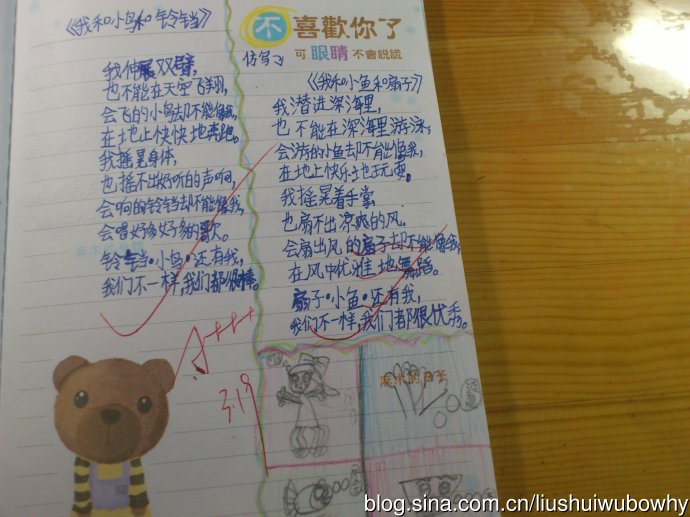 《我和小鸟和铃铛》
我伸展双臂,
也不能在天空飞翔,
会飞的小鸟却不能像我,
在地上快快地奔跑。
我摇晃身体,
也摇不出好听的声响,
会响的铃铛却不能像我,
会唱好多好多的歌。
铃铛·小鸟·还有我,
我们不一样,我们都很棒。
不喜歡你了
可眼睛不會說謊
仿写
《我和小鱼和扇子》
我潜进深海里,
也不能在深海里游泳,
会游的小鱼却不能像我,
在地上快乐地玩耍。
我摇晃着手掌,
也扇不出凉爽的风,
会扇出风的扇子却不能像我,
在风中优雅地舞蹈。
扇子·小鱼·还有我,
我们不一样,我们都很优秀。
A+++
3.19
blog.sina.com.cn/liushuiwubowhy